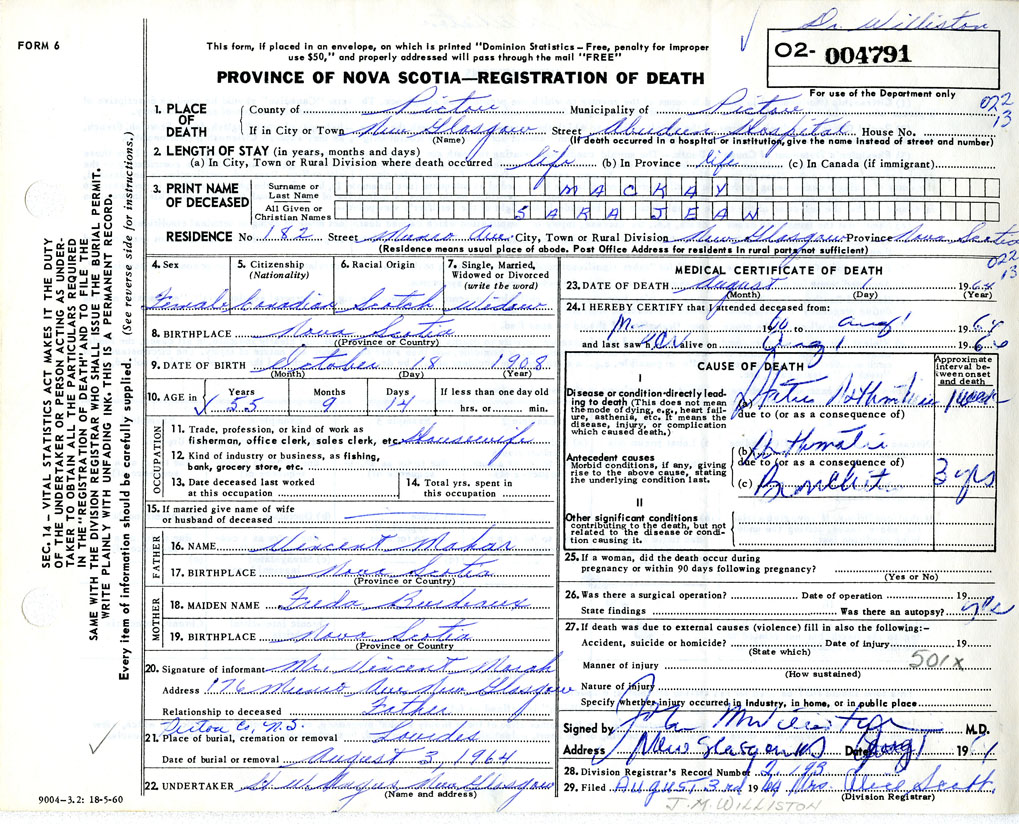 FORM 6
Dr. Williston
This form, if placed in an envelope, on which is printed "Dominion Statistics – Free, penalty for improper
use $50," and properly addressed will pass through the mail "FREE"
O2- 004791
PROVINCE OF NOVA SCOTIA—REGISTRATION OF DEATH
For use of the Department only
022
13
1. PLACE OF DEATH
County of Pictou Municipality of Pictou
If in City or Town New Glasgow Street Aberdeen Hospital House No.
(Name) (If death occurred in a hospital or institution, give the name instead of street and number)
2. LENGTH OF STAY (in years, months and days)
(a) In City, Town or Rural Division where death occurred life (b) In Province life (c) In Canada (if immigrant)
3. PRINT NAME OF DECEASED
Surname or Last Name MACKAY
All Given or Christian Names SARA JEAN
RESIDENCE No 182 Street Munro Ave. City, Town or Rural Division New Glasgow Province Nova Scotia
(Residence means usual place of abode. Post Office Address for residents in rural parts not sufficient)
022
13
SEC. 14 – VITAL STATISTICS ACT MAKES IT THE DUTY
OF THE UNDERTAKER OR PERSON ACTING AS UNDER-
TAKER TO OBTAIN ALL THE PARTICULARS REQUIRED
IN THE "REGISTRATION OF DEATH" AND TO FILE THE
SAME WITH THE DIVISION REGISTRAR WHO SHALL ISSUE THE BURIAL PERMIT.
WRITE PLAINLY WITH UNFADING INK. THIS IS A PERMANENT RECORD.
Every item of information should be carefully supplied. (See reverse side for instructions.)
4. Sex
Female
5. Citizenship
(Nationality)
Canadian
6. Racial Origin
Scotch
7. Single, Married,
Widowed or Divorced
(write the word)
Widow
8. BIRTHPLACE Nova Scotia
(Province or Country)
9. DATE OF BIRTH October 18 1908
(Month) (Day) (Year)
10. AGE in
Years 55
Months 9
Days 14
If less than one day
hrs. or min.
OCCUPATION
11. Trade, profession, or kind of work as
fisherman, office clerk, sales clerk, etc. Housewife
12. Kind of industry or business, as fishing,
bank, grocery store, etc.
13. Date deceased last worked
at this occupation
14. Total yrs. spent in
this occupation
15. If married give name of wife
or husband of deceased
FATHER
16. NAME Vincent Mahar
17. BIRTHPLACE Nova Scotia
(Province or Country)
MOTHER
18. MAIDEN NAME Freda
19. BIRTHPLACE Nova Scotia
(Province or Country
20. Signature of informant Mr. Vincent
Address 176 Munro Ave New Glasgow
Relationship to deceased Father
Pictou Co, N.S.
21. Place of burial, cremation or removal Lourdes
Date of burial or removal August 3, 1964
22. UNDERTAKER New Glasgow
(Name and address)
9004–3.2: 18-5-60
MEDICAL CERTIFICATE OF DEATH
23. DATE OF DEATH August 1 1964
(Month) (Day) (Year)
24. I HEREBY CERTIFY that I attended deceased from:
1960 to Aug 1 1964
and last saw her alive on Aug 1 1964
CAUSE OF DEATH
Approximate
interval be-
tween onset
and death
I
Disease or condition directly lead-
ing to death (This does not mean
the mode of dying, e.g., heart fail-
ure, asthenia, etc. It means the
disease, injury, or complication
which caused death.)
(a) Status Asthmaticus 1 week
due to (or as a consequence of)
Antecedent causes
Morbid conditions, if any, giving
rise to the above cause, stating
the underlying condition last.
(b) Asthmatic
due to (or as a consequence of)
(c) Bronchitis 3 yrs
II
Other significant conditions
contributing to the death, but not
related to the disease or condi-
tion causing it.
25. If a woman, did the death occur during
pregnancy or within 90 days following pregnancy?
(Yes or No)
26. Was there a surgical operation? Date of operation 19
State findings Was there an autopsy?
27. If death was due to external causes (violence) fill in also the following:–
Accident, suicide or homicide? Date of injury 19
(State which)
501x
Manner of injury
(How sustained)
Nature of injury
Specify whether injury occurred in industry, in home, or in public place
Signed by John M Williston M.D.
Address New Glasgow NS Date Aug 1 19
28. Division Registrar's Record Number 2,193
29. Filed August 3rd 1964 Mrs Alice Scott
(Division Registrar)
J.M. WILLISTON